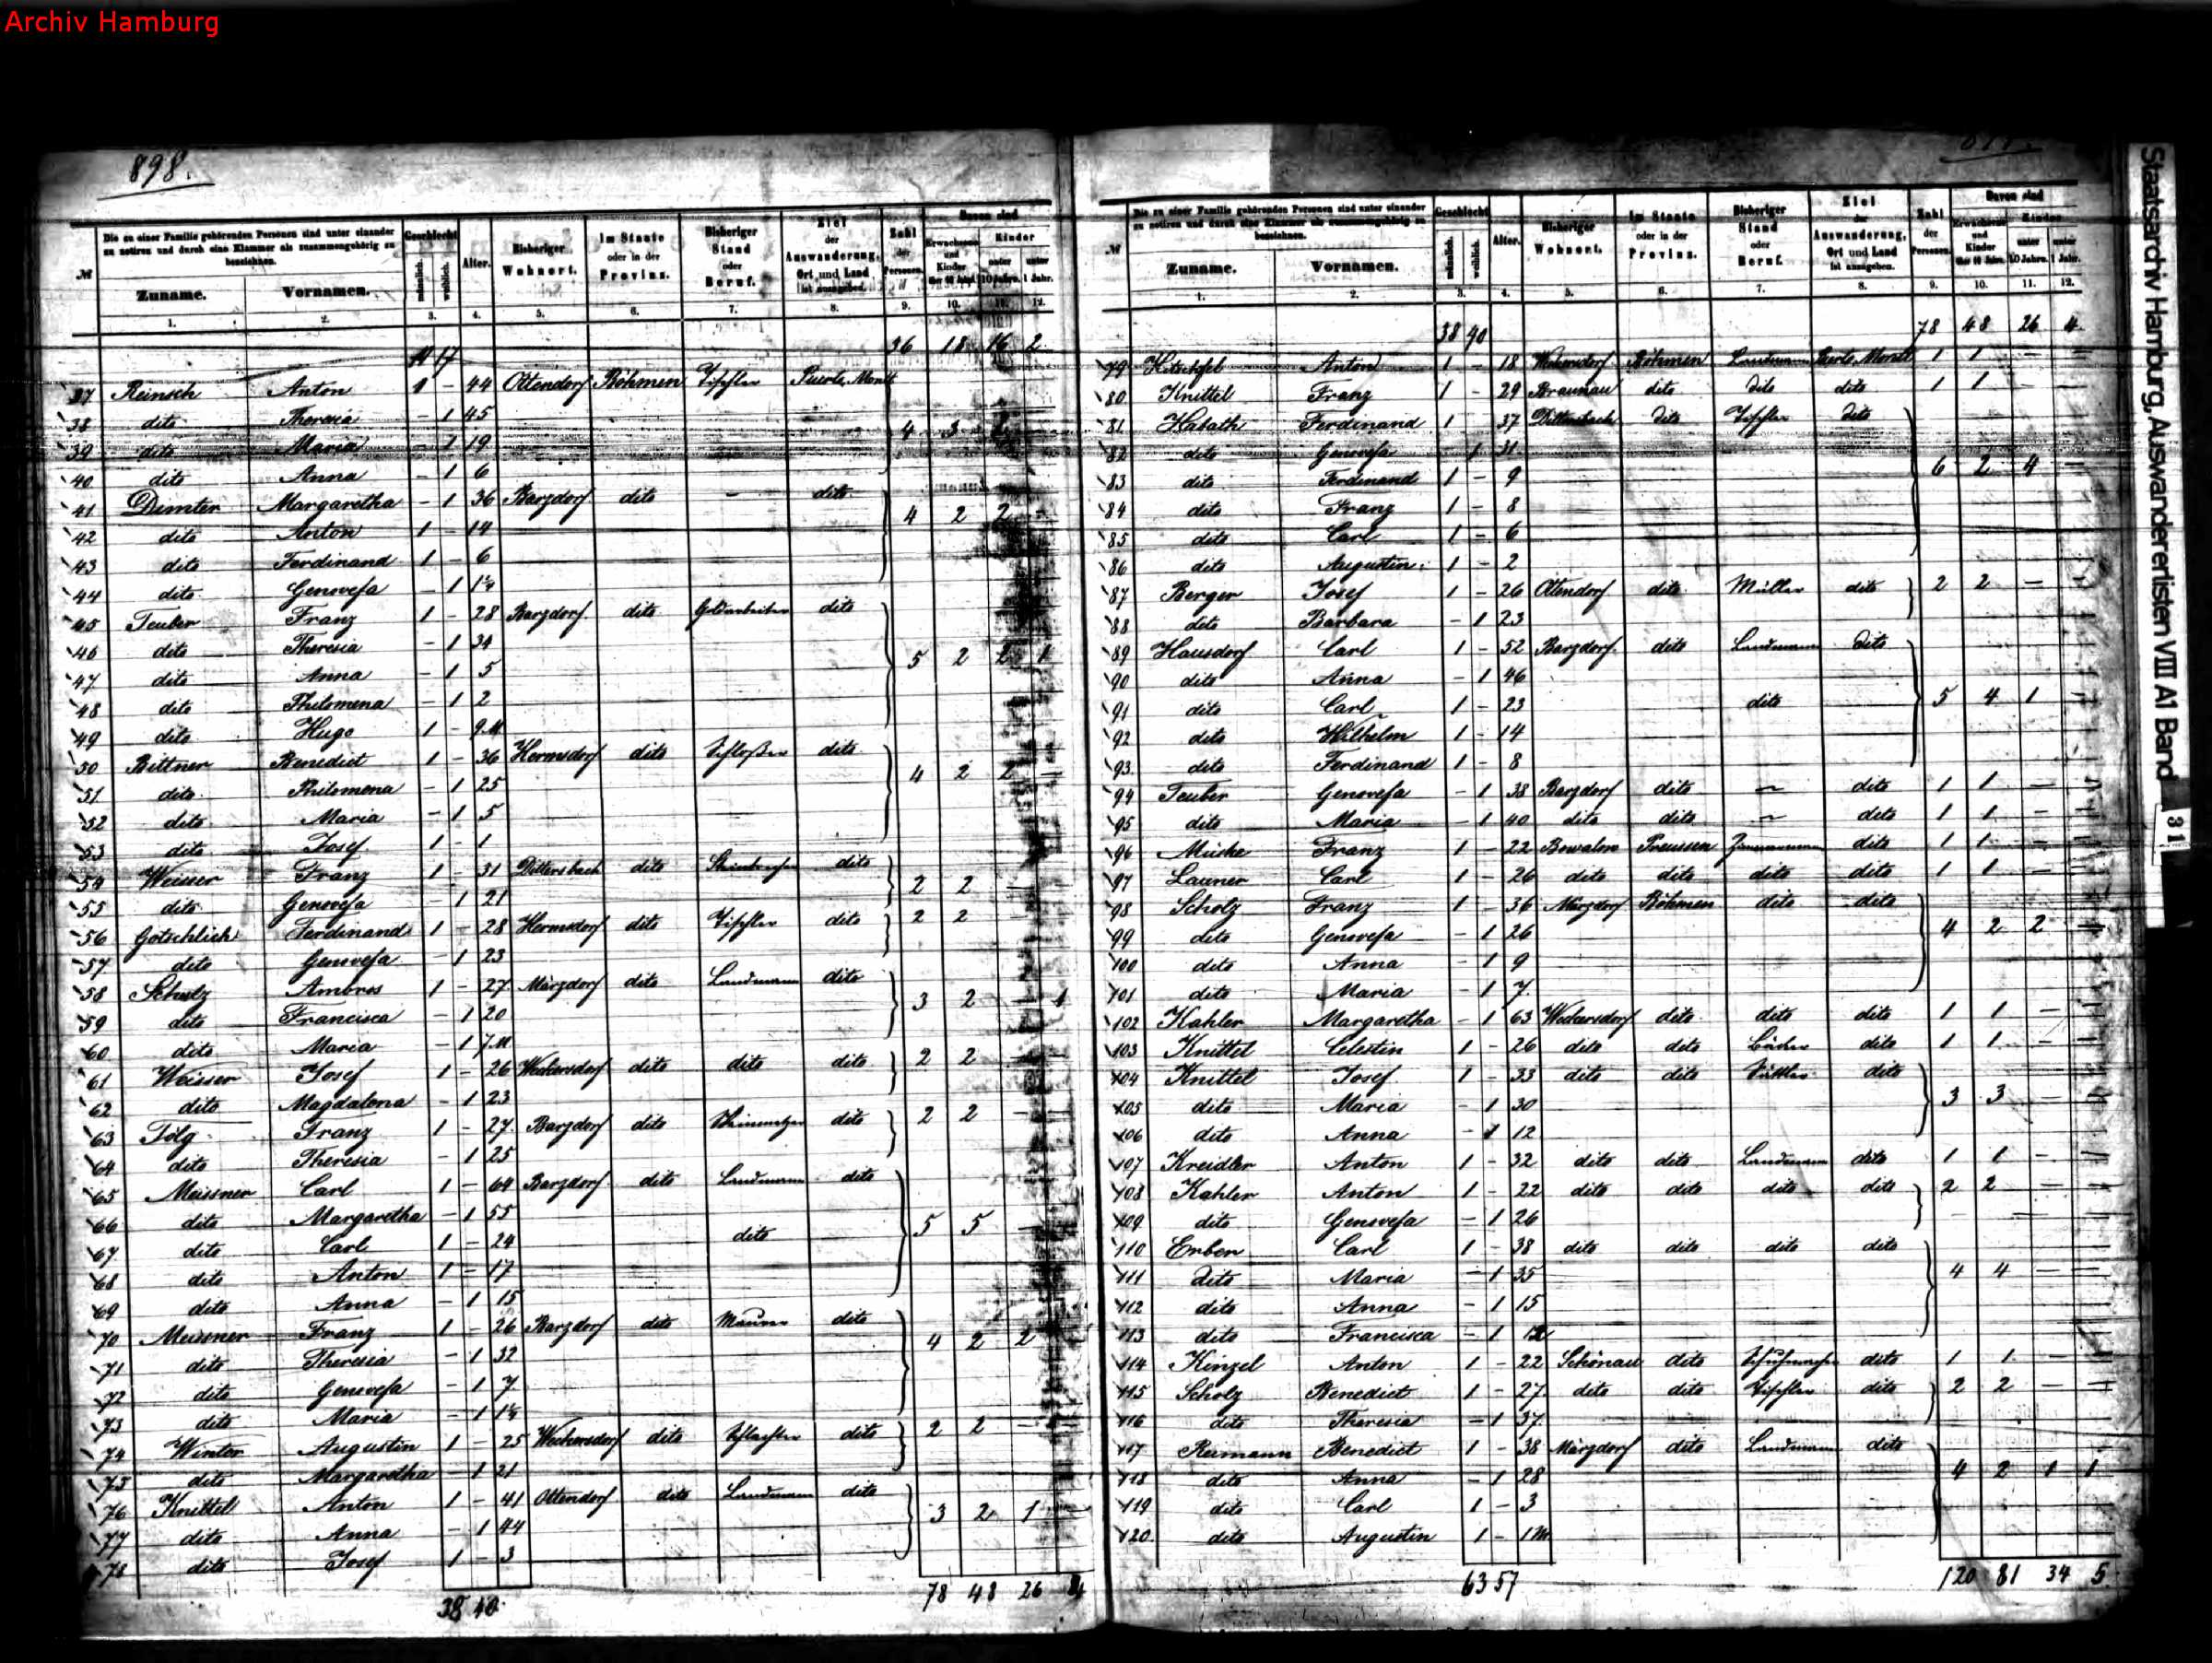 Archiv Hamburg
898.
Die zu einer Familie gehörenden Personen sind unter einander zu notiren und durch eine Klammer als zusammengehörig zu bezeichnen.
№ Zuname. Vornamen. Geschlecht männlich. weiblich. Alter. Bisheriger Wohnort. Im Staate oder in der Provinz. Bisheriger Stand oder Beruf. Ziel der Auswanderung, Ort und Land ist anzugeben. Zahl der Personen. Davon sind Erwachsene und Kinder über 10 Jahre. Kinder unter 10 Jahre. unter 1 Jahr.
1. 2. 3. 4. 5. 6. 7. 8. 9. 10. 11. 12.
17 36 18 16 2
37 Reinsch Anton 1 - 44 Ottendorf Böhmen Tischler Puerto Montt
38 dito Theresia - 1 45
39 dito Maria - 1 19 4 3
40 dito Anna - 1 6
41 Dimter Margaretha - 1 36 Barzdorf dito - dito
42 dito Anton 1 - 14 4 2 2 -
43 dito Ferdinand 1 - 6
44 dito Genovefa - 1 1¼
45 Teuber Franz 1 - 28 Barzdorf dito Goldarbeiter dito
46 dito Theresia - 1 34
47 dito Anna - 1 5 5 2 2 1
48 dito Philomena - 1 2
49 dito Hugo 1 - 9 M
50 Bittner Benedict 1 - 36 Hermsdorf dito Schloßer dito
51 dito Philomena - 1 25 4 2 2 -
52 dito Maria - 1 5
53 dito Josef 1 - 1
54 Weisser Franz 1 - 31 Dittersbach dito dito
55 dito Genovefa - 1 21 2 2 -
56 Gotschlich Ferdinand 1 - 28 Hermsdorf dito Tischler dito 2 2 -
57 dito Genovefa - 1 23
58 Scholz Ambros 1 - 27 Märzdorf dito Landmann dito
59 dito Francisca - 1 20 3 2 - 1
60 dito Maria - 1 7 M
61 Weisser Josef 1 - 26 Weckersdorf dito dito dito 2 2 -
62 dito Magdalena - 1 23
63 Tölg Franz 1 - 27 Barzdorf dito dito 2 2 -
64 dito Theresia - 1 25
65 Meissner Carl 1 - 64 Barzdorf dito Landmann dito
66 dito Margaretha - 1 55
67 dito Carl 1 - 24 dito 5 5 -
68 dito Anton 1 - 17
69 dito Anna - 1 15
70 Meissner Franz 1 - 26 Barzdorf dito Maurer dito
71 dito Theresia - 1 32 4 2 2
72 dito Genovefa - 1 7
73 dito Maria - 1 1½
74 Winter Augustin 1 - 25 Weckersdorf dito Schlachter dito 2 2 -
75 dito Margaretha - 1 21
76 Knittel Anton 1 - 41 Ottendorf dito Landmann dito
77 dito Anna - 1 44 3 2 1 -
78 dito Josef 1 - 3
38 40 78 48 26 4
Die zu einer Familie gehörenden Personen sind unter einander zu notiren und durch eine Klammer als zusammengehörig zu bezeichnen.
№ Zuname. Vornamen. Geschlecht männlich. weiblich. Alter. Bisheriger Wohnort. Im Staate oder in der Provinz. Bisheriger Stand oder Beruf. Ziel der Auswanderung, Ort und Land ist anzugeben. Zahl der Personen. Davon sind Erwachsene und Kinder über 10 Jahre. Kinder unter 10 Jahre. unter 1 Jahr.
1. 2. 3. 4. 5. 6. 7. 8. 9. 10. 11. 12.
38 40 78 48 26 4
79 Anton 1 - 18 Weckersdorf Böhmen Landmann Puerto Montt 1 1 - -
80 Knittel Franz 1 - 29 Braunau dito dito dito 1 1 -
81 Habath Ferdinand 1 37 Dittersbach dito Tischler dito
82 dito Genovefa - 1 31
83 dito Ferdinand 1 - 9 6 2 4 -
84 dito Franz 1 - 8
85 dito Carl 1 - 6
86 dito Augustin 1 - 2
87 Berger Josef 1 - 26 Ottendorf dito Müller dito 2 2 -
88 dito Barbara - 1 23
89 Hausdorf Carl 1 - 52 Barzdorf dito Landmann dito
90 dito Anna - 1 46
91 dito Carl 1 - 23 dito 5 4 1 -
92 dito Wilhelm 1 - 14
93 dito Ferdinand 1 - 8
94 Teuber Genovefa - 1 38 Barzdorf dito - dito 1 1 -
95 dito Maria - 1 40 dito dito - dito 1 1 -
96 Franz 1 - 22 Preussen Zimmermann dito 1 1 -
97 Launer Carl 1 - 26 dito dito dito dito 1 1 -
98 Scholz Franz 1 - 36 Märzdorf Böhmen dito dito
99 dito Genovefa - 1 26 4 2 2 -
100 dito Anna - 1 9
101 dito Maria - 1 7
102 Kahler Margaretha - 1 63 Weckersdorf dito dito dito 1 1 -
103 Knittel Celestin 1 - 26 dito dito dito 1 1 -
104 Knittel Josef 1 - 33 dito dito dito
105 dito Maria - 1 30 3 3 - -
106 dito Anna - 1 12
107 Kreidler Anton 1 - 32 dito dito Landmann dito 1 1 - -
108 Kahler Anton 1 - 22 dito dito dito dito 2 2 - -
109 dito Genovefa - 1 26
110 Erben Carl 1 - 38 dito dito dito dito
111 dito Maria - 1 35 4 4 - -
112 dito Anna - 1 15
113 dito Francisca - 1 12
114 Kinzel Anton 1 - 22 Schönau dito Schuhmacher dito 1 1 - -
115 Scholz Benedict 1 - 27 dito dito Tischler dito 2 2 - -
116 dito Theresia - 1 37
117 Reimann Benedict 1 - 38 Märzdorf dito Landmann dito
118 dito Anna - 1 28 4 2 1 1
119 dito Carl 1 - 3
120. dito Augustin 1 - 1 M
63 57 120 81 34 5
Staatsarchiv Hamburg, Auswandererlisten VIII A1 Band 31